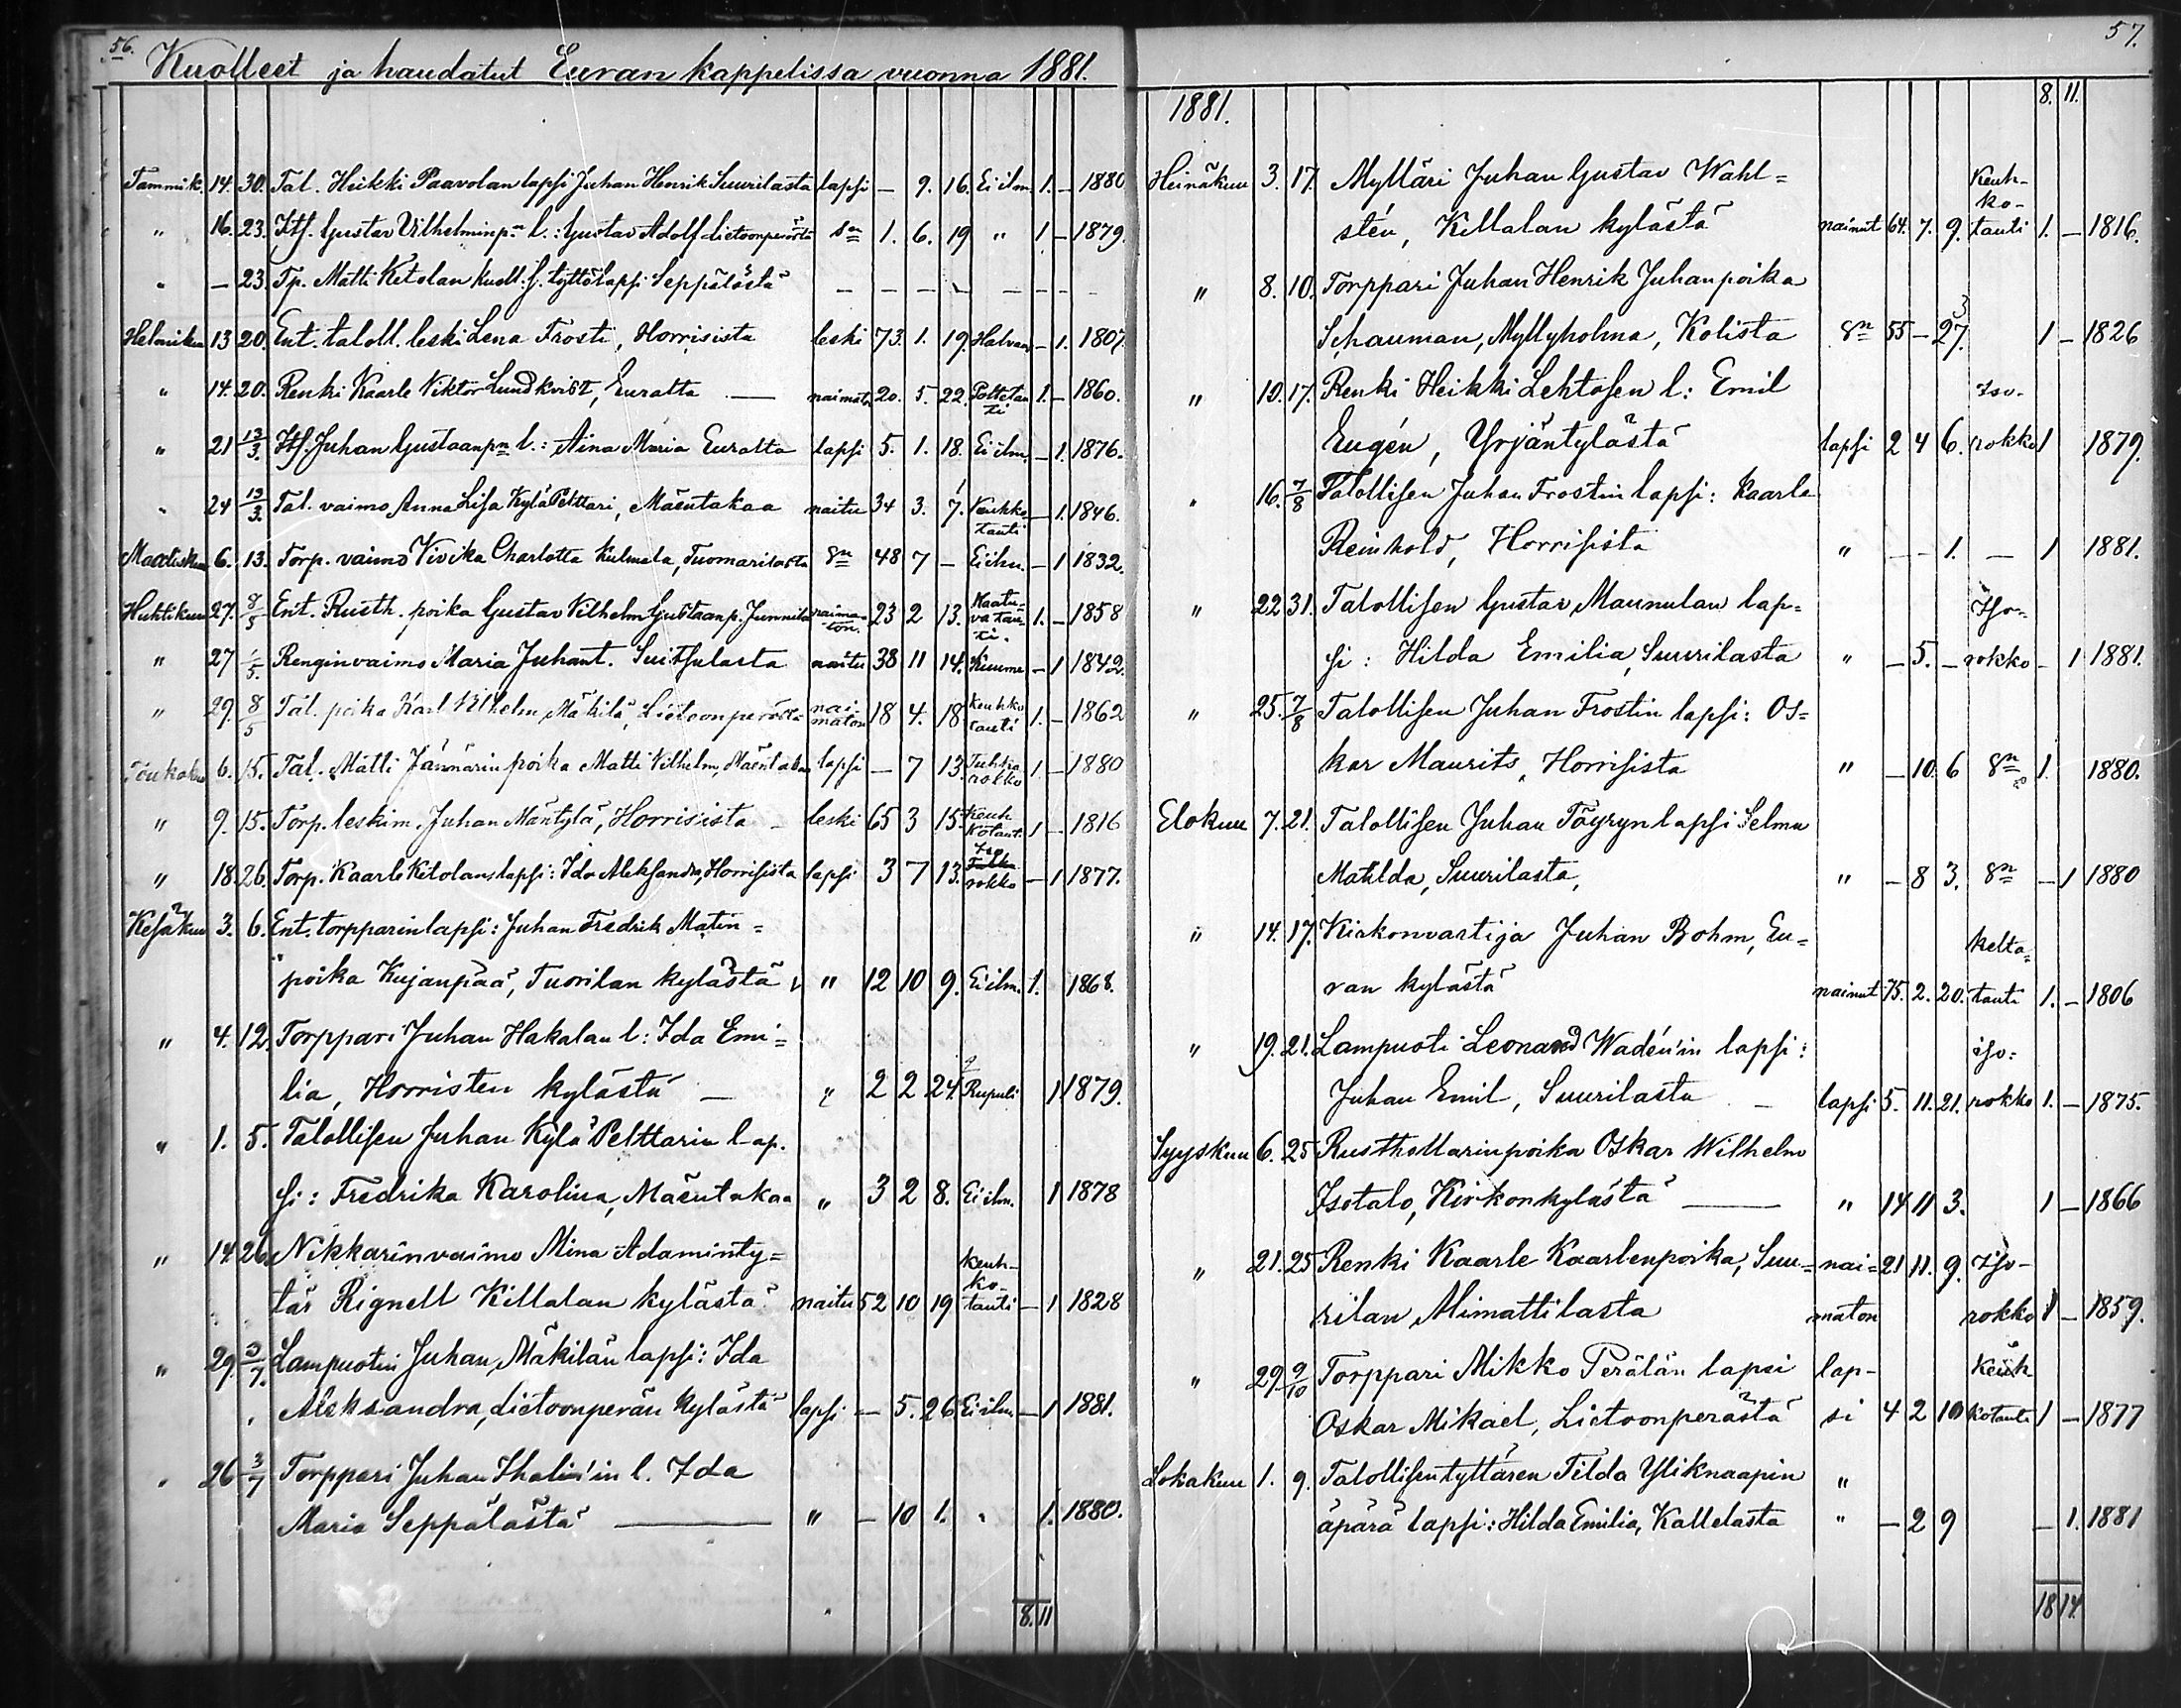 56.
Kuolleet ja haudatut Euran kappelissa vuonna 1881.
Tammik. 14. 30. Tal. Heikki Paavolan lapsi Juhan Henrik Suurilasta lapsi — 9. 16. Ei ilm. 1. — 1880
" 16. 23. Itf. Gustav Vilhelminp:n l.: Gustav Adolf Lietoonperästä sn 1. 6. 19 " 1 — 1879.
" — 23. Tp. Matti Ketolan kuoll. s. tyttölapsi Seppälästä — — — — — — — —
Helmikuu 13 20. Ent. taloll. leski Lena Frosti, Horrisista leski 73. 1. 19. Halvaus — 1. 1807.
" 14. 20. Renki Kaarle Viktor Lundkvist, Euralta — naimato 20. 5. 22. Polttetauti 1. — 1860.
" 21 13/3. Itf. Juhan Gustaanpn l.: Aina Maria Euralta lapsi 5. 1. 18. Ei ilm. — 1. 1876.
" 24 13/3. Tal. vaimo Anna Lisa KyläPelttari, Mäentakaa naitu 34 3. 7. Keuhkotauti — 1. 1846.
Maalisku 6. 13. Torp. vaimo Vivika Charlotta Kulmala, Tuomarilasta sn 48 7 — Ei ilm. — 1 1832.
Huhtikuu 27. 8/5 Ent. Rusth. poika Gustav Vilhelm Gustaanp. Junnila naimaton. 23 2 13. Kaatuvatauti. 1. — 1858
" 27 1/5. Renginvaimo Maria Juhant. Suitsulasta naitu 38 11 14. Kuume — 1 1842.
" 29. 8/5 Tal. poika Karl Vilhelm Mäkilä, Lietoonperästä naimaton 18 4. 18 Keuhkotauti 1. — 1862
Toukoku 6. 15. Tal. Matti Jännärin poika Matti Vilhelm, Mäentakaa lapsi — 7 13. Tuhkarokko 1. — 1880
" 9. 15. Torp. leskim. Juhan Mäntylä, Horrisista — leski 65 3 15. Keuhkotaut. 1 — 1816
" 18. 26. Torp. Kaarle Ketolans lapsi: Ida Aleksandra, Horrisista lapsi 3 7 13. Iso rokko — 1 1877.
Kesäkuu 3. 6. Ent. torpparin lapsi: Juhan Fredrik Matin=
poika Kujanpää, Tuorilan kylästä " 12 10 9. Ei ilm. 1. 1868.
" 4. 12. Torppari Juhan Hakalan l: Ida Emi=
lia, Horristen kylästä — " 2 2 24. Rupuli 1. 1879.
" 1. 5. Talollisen Juhan KyläPelttarin lap.
si: Fredrika Karolina, Mäentakaa " 3 2 8. Ei ilm. 1 1878
" 14. 26. Nikkarinvaimo Mina Adaminty=
tär Rignell Killalan kylästä. naitu 52 10 19 Keuhkotauti — 1 1828
" 29. 3/7. Lampuotin Juhan Mäkilän lapsi: Ida
Aleksandra, Lietoonperän kylästä lapsi — 5. 26. Ei ilm — 1 1881.
" 26 3/7 Torppari Juhan Thalin'in l. Ida
Maria Seppälästä — " — 10 1. " 1. 1880.
8. 11
57.
1881. 8. 11.
Heinäkuu 3. 17. Mylläri Juhan Gustav Wahl=
stén, Killalan kylästä nainut 64. 7. 9. Keuhkotauti 1. — 1816.
" 8. 10. Torppari Juhan Henrik Juhanpoika
Schauman, Myllyholma, Kolista sn 55 — 27. 1 — 1826
" 10. 17. Renki Heikki Lehtosen l: Emil
Eugén, Yrjäntylästä lapsi 2 4 6. Iso-rokko 1 1879.
" 16. 7/8 Talollisen Juhan Frostin lapsi: Kaarle
Reinhold, Horrisista " — — 1. — 1 1881.
" 22 31. Talollisen Gustav Maunulan lap=
si: Hilda Emilia, Suurilasta " — 5. — Iso-rokko — 1 1881.
" 25. 7/8 Talollisen Juhan Frostin lapsi: Os=
kar Maurits, Horrisista " — 10. 6 sn 1. 1880.
Elokuu 7. 21. Talollisen Juhan Töyryn lapsi Selma
Matilda, Suurilasta, " — 8 3. sn — 1 1880
" 14. 17. Kirkonvartija Juhan Bohm, Eu=
ran kylästä nainut 75. 2. 20. Keltatauti 1. — 1806
" 19. 21. Lampuoti Leonard Wadén'in lapsi:
Juhan Emil, Suurilasta — lapsi 5. 11. 21. iso=rokko 1. — 1875.
Syyskuu 6. 25 Rusthollarin poika Oskar Wilhelm
Isotalo, Kirkonkylästä — " 14 11 3. 1 — 1866
" 21. 25 Renki Kaarle Kaarlenpoika, Suu= nai= 21 11. 9. Iso-
rilan Alimattilasta maton rokko 1 — 1859.
" 29. 9/10 Torppari Mikko Perälän lapsi lap- Keuh-
Oskar Mikael, Lietoonperästä si 4 2 10 kotauti 1 — 1877
Lokakuu 1. 9. Talollisen tyttären Tilda Yliknaapin "
äpärä lapsi: Hilda Emilia, Kallelasta " — 2 9 — 1. 1881
18 14.